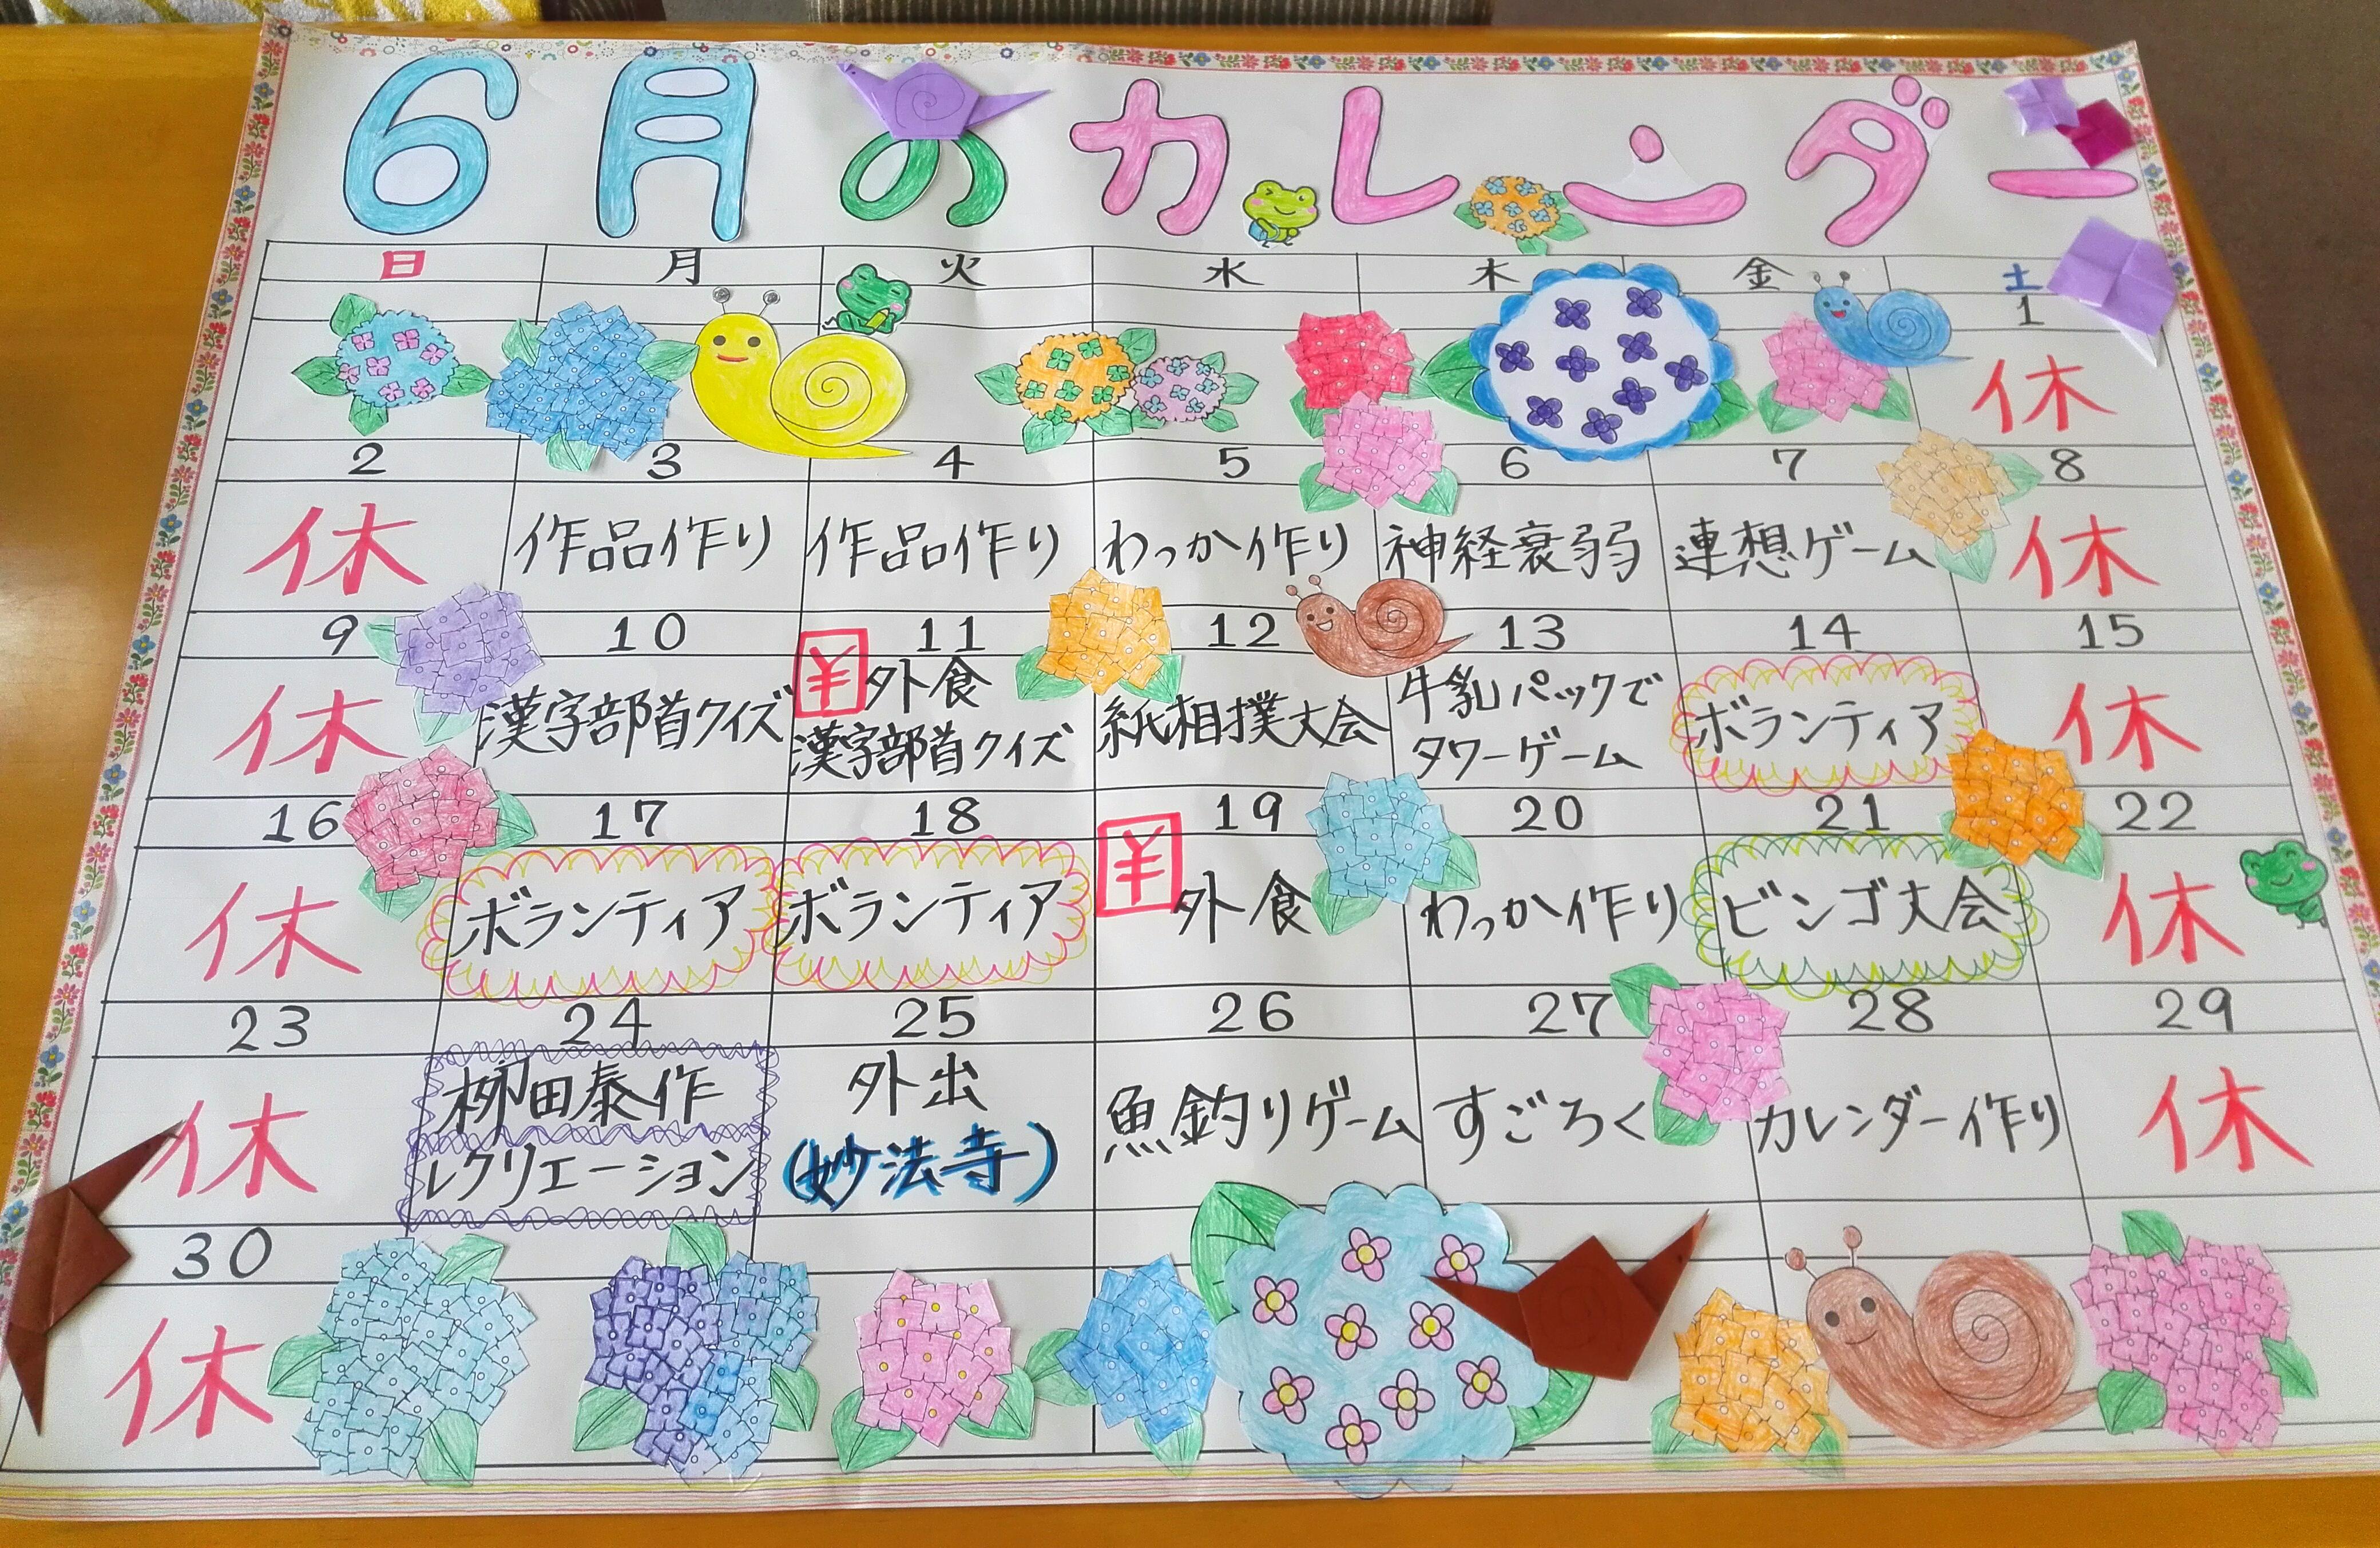 6月のカレンダー
日 月 火 水 木 金 土
1
休
2 3 4 5 6 7 8
休 作品作り 作品作り わっか作り 神経衰弱 連想ゲーム 休
9 10 11 12 13 14 15
休 漢字部首クイズ ¥外食 紙相撲大会 牛乳パックで ボランティア 休
漢字部首クイズ タワーゲーム
16 17 18 19 20 21 22
休 ボランティア ボランティア ¥外食 わっか作り ビンゴ大会 休
23 24 25 26 27 28 29
休 柳田泰作 外出 魚釣りゲーム すごろく カレンダー作り 休
レクリエーション (妙法寺)
30
休